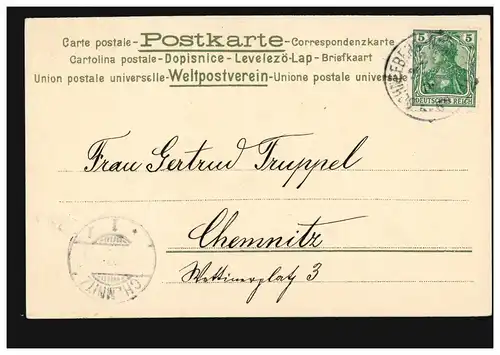 Carte postale - Postkarte - Correspondenzkarte
Cartolina postale - Dopisnice - Levelezö-Lap - Briefkaart
Union postale universelle - Weltpostverein - Unione postale universale
5 5
DEUTSCHES REICH
Frau Gertrud Truppel
Chemnitz
Wettinerplatz 3
1
CHEMNITZ